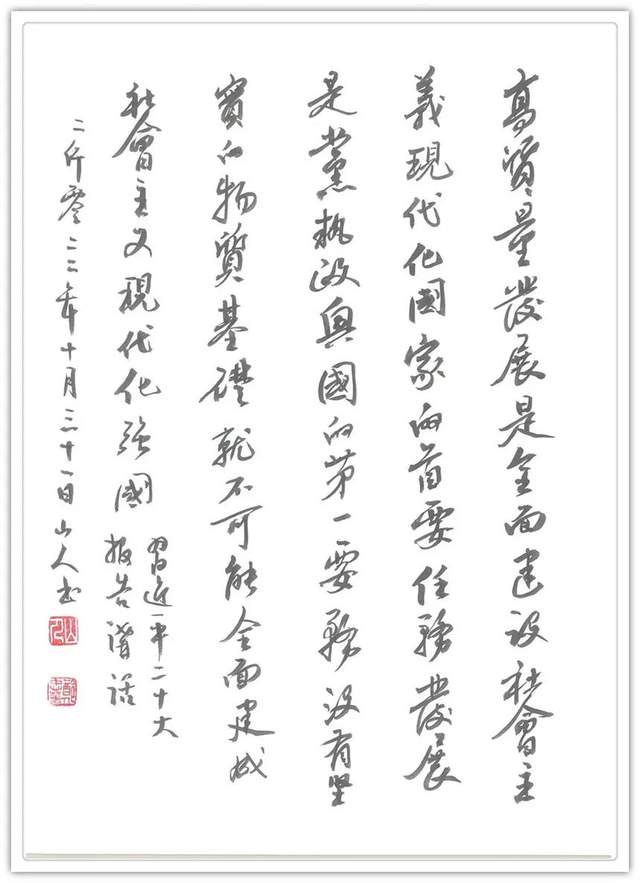 高质量發展是全面建设社會主
義現代化國家的首要任務發展
是黨執政興國的第一要務没有坚
實的物質基礎就不可能全面建成
社會主义現代化强國
習近平二十大
报告講话
二仟零二二年十月三十一日山人书